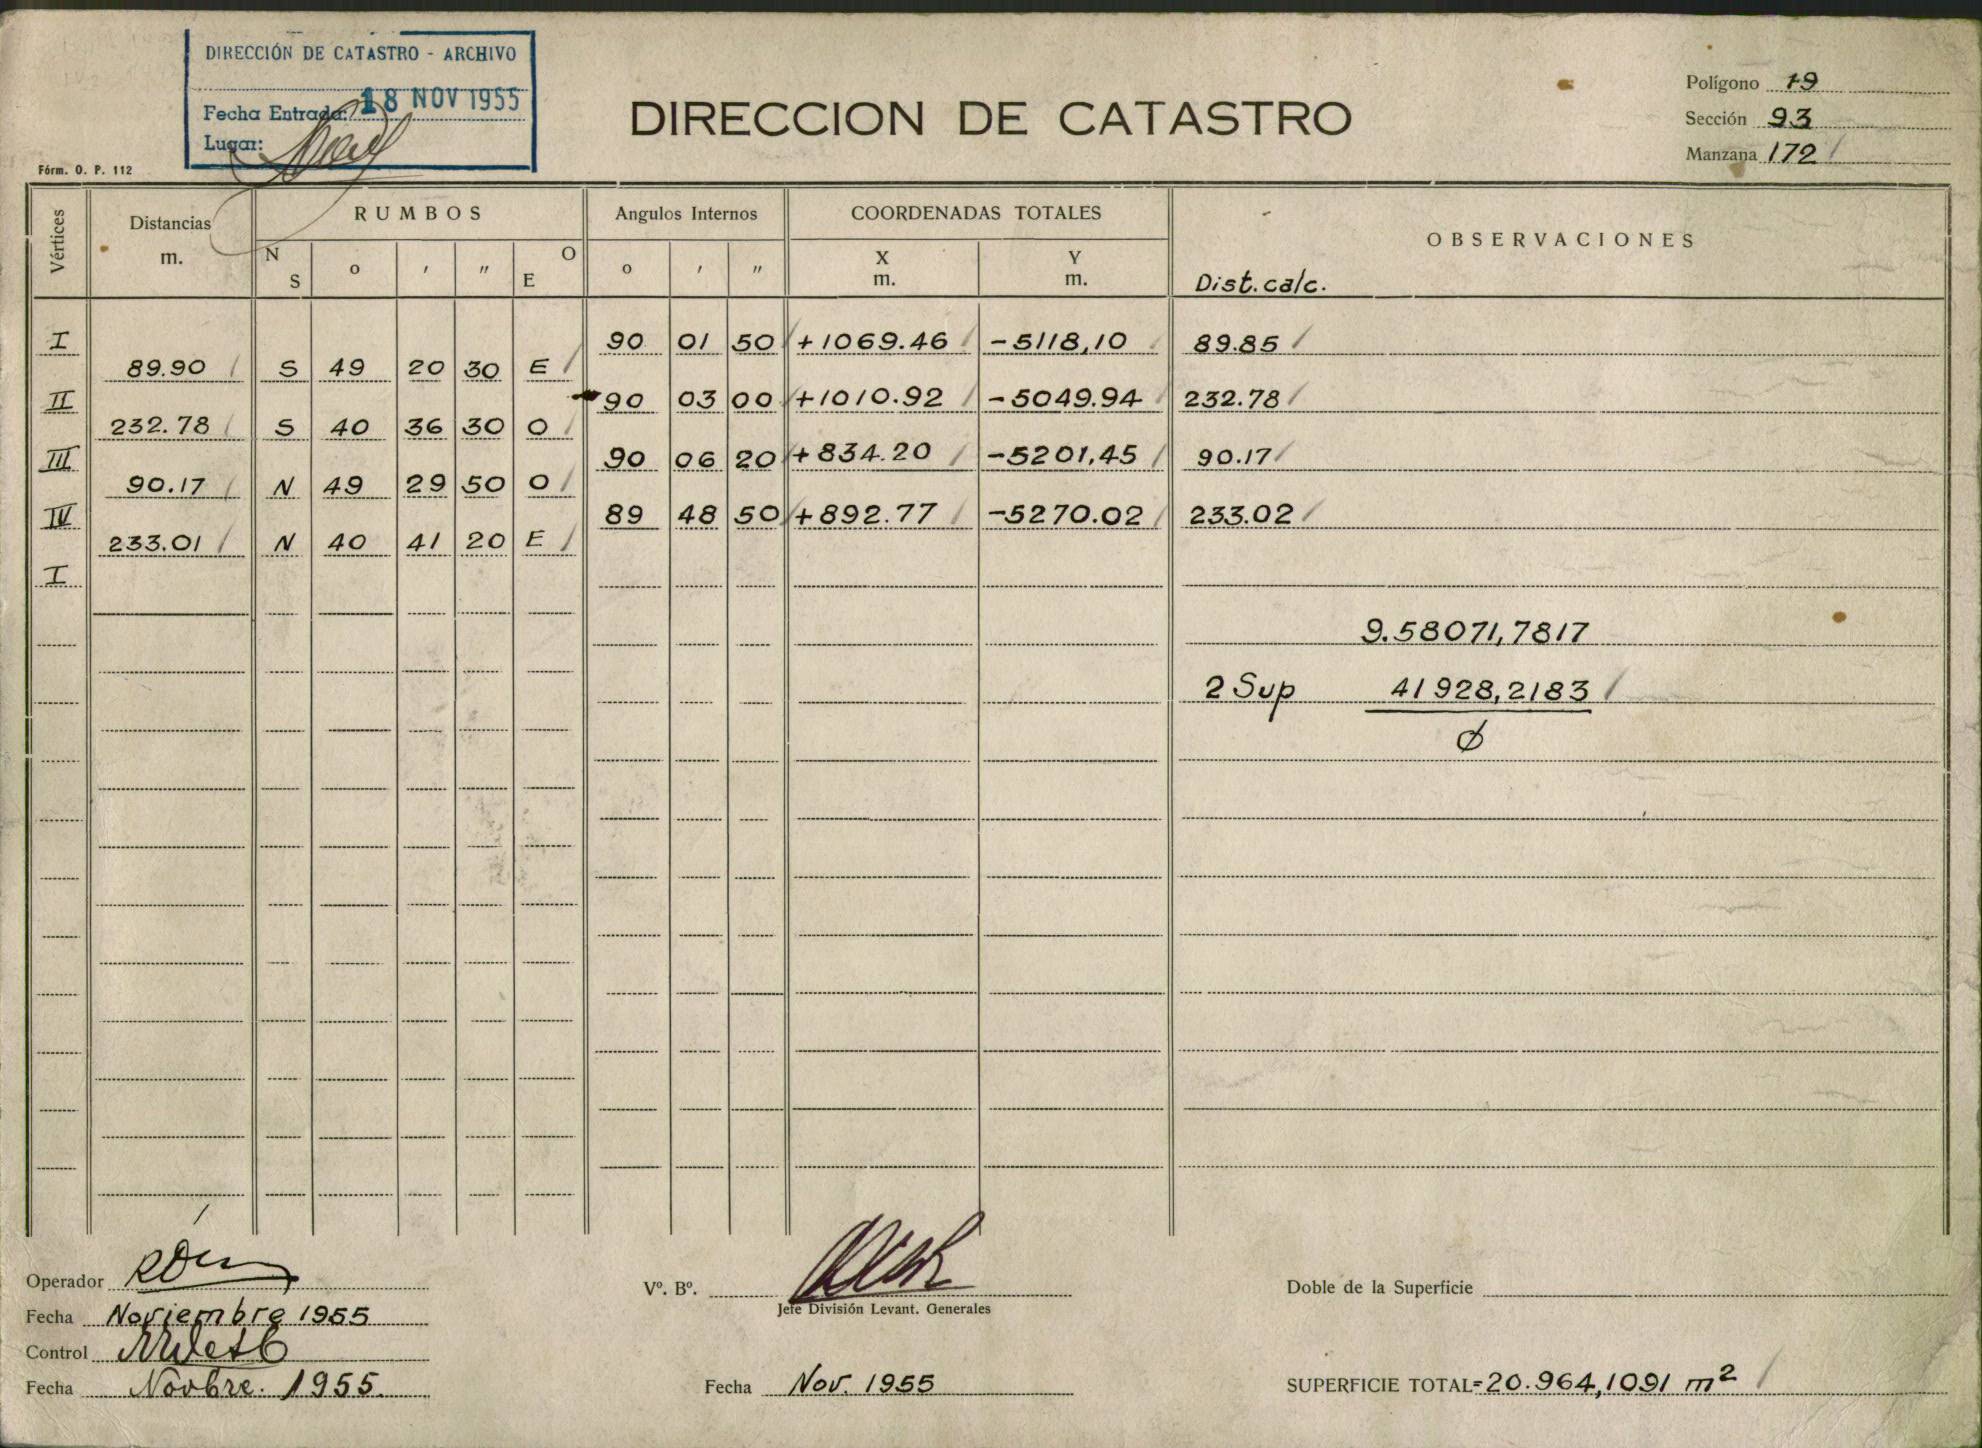 DIRECCIÓN DE CATASTRO - ARCHIVO
Fecha Entrada: 18 NOV 1955
Lugar:
Fórm. O. P. 112
DIRECCION DE CATASTRO
Polígono 19
Sección 93
Manzana 172
Vértices
Distancias m.
RUMBOS
N S ° ' " O E
Angulos Internos
° ' "
COORDENADAS TOTALES
X m.
Y m.
OBSERVACIONES
Dist. calc.
I 90 01 50 +1069.46 -5118,10 89.85
89.90 S 49 20 30 E
II 90 03 00 +1010.92 -5049.94 232.78
232.78 S 40 36 30 O
III 90 06 20 +834.20 -5201,45 90.17
90.17 N 49 29 50 O
IV 89 48 50 +892.77 -5270.02 233.02
233.01 N 40 41 20 E
I
9.58071,7817
2 Sup 41928,2183
∅
Operador
Fecha Noviembre 1955
Control
Fecha Novbre. 1955.
Vº. Bº.
Jefe División Levant. Generales
Fecha Nov. 1955
Doble de la Superficie
SUPERFICIE TOTAL=20.964,1091 m²